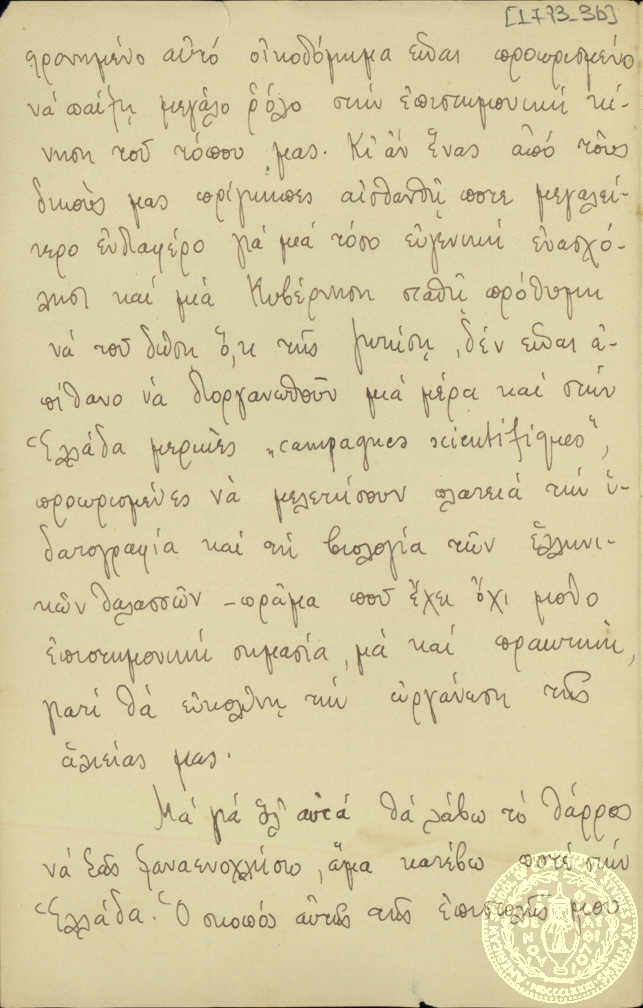 [1773_3b]
φρονημένο αὐτό οἰκοδόμημα εἶναι προωρισμένο
νά παίξῃ μεγάλο ῥόλο στήν ἐπιστημονική κί-
νηση τοῦ τόπου μας. Κι' ἄν ἕνας ἀπό τούς
δικούς μας πρίγκηπες αἰσθανθῇ ποτε μεγαλεί-
τερο ἐνδιαφέρο γιά μιά τόσο εὐγενική ἐνασχό-
ληση καί μιά Κυβέρνηση σταθῇ πρόθυμη
νά τοῦ δώσῃ ὅ,τι τῆς ζητήσῃ, δέν εἶναι ἀ-
πίθανο νά διοργανωθοῦν μιά μέρα καί στήν
Ἑλλάδα μερικές „campagnes scientifiques",
προωρισμένες νά μελετήσουν πλατειά τήν ὑ-
δατογραφία καί τή βιολογία τῶν ἑλληνι-
κῶν θαλασσῶν – πρᾶμα πού ἔχει ὄχι μόνο
ἐπιστημονική σημασία, μά καί πρακτική,
γιατί θά εὐκολύνῃ τήν ὀργάνωση τῆς
ἁλιείας μας.
Μά γιά ὅλ' αὐτά θά λάβω τό θάρρος
νά Σᾶς ξαναενοχλήσω, ἅμα κατέβω ποτέ στήν
Ἑλλάδα. Ὁ σκοπός αὐτῆς τῆς ἐπιστολῆς μου